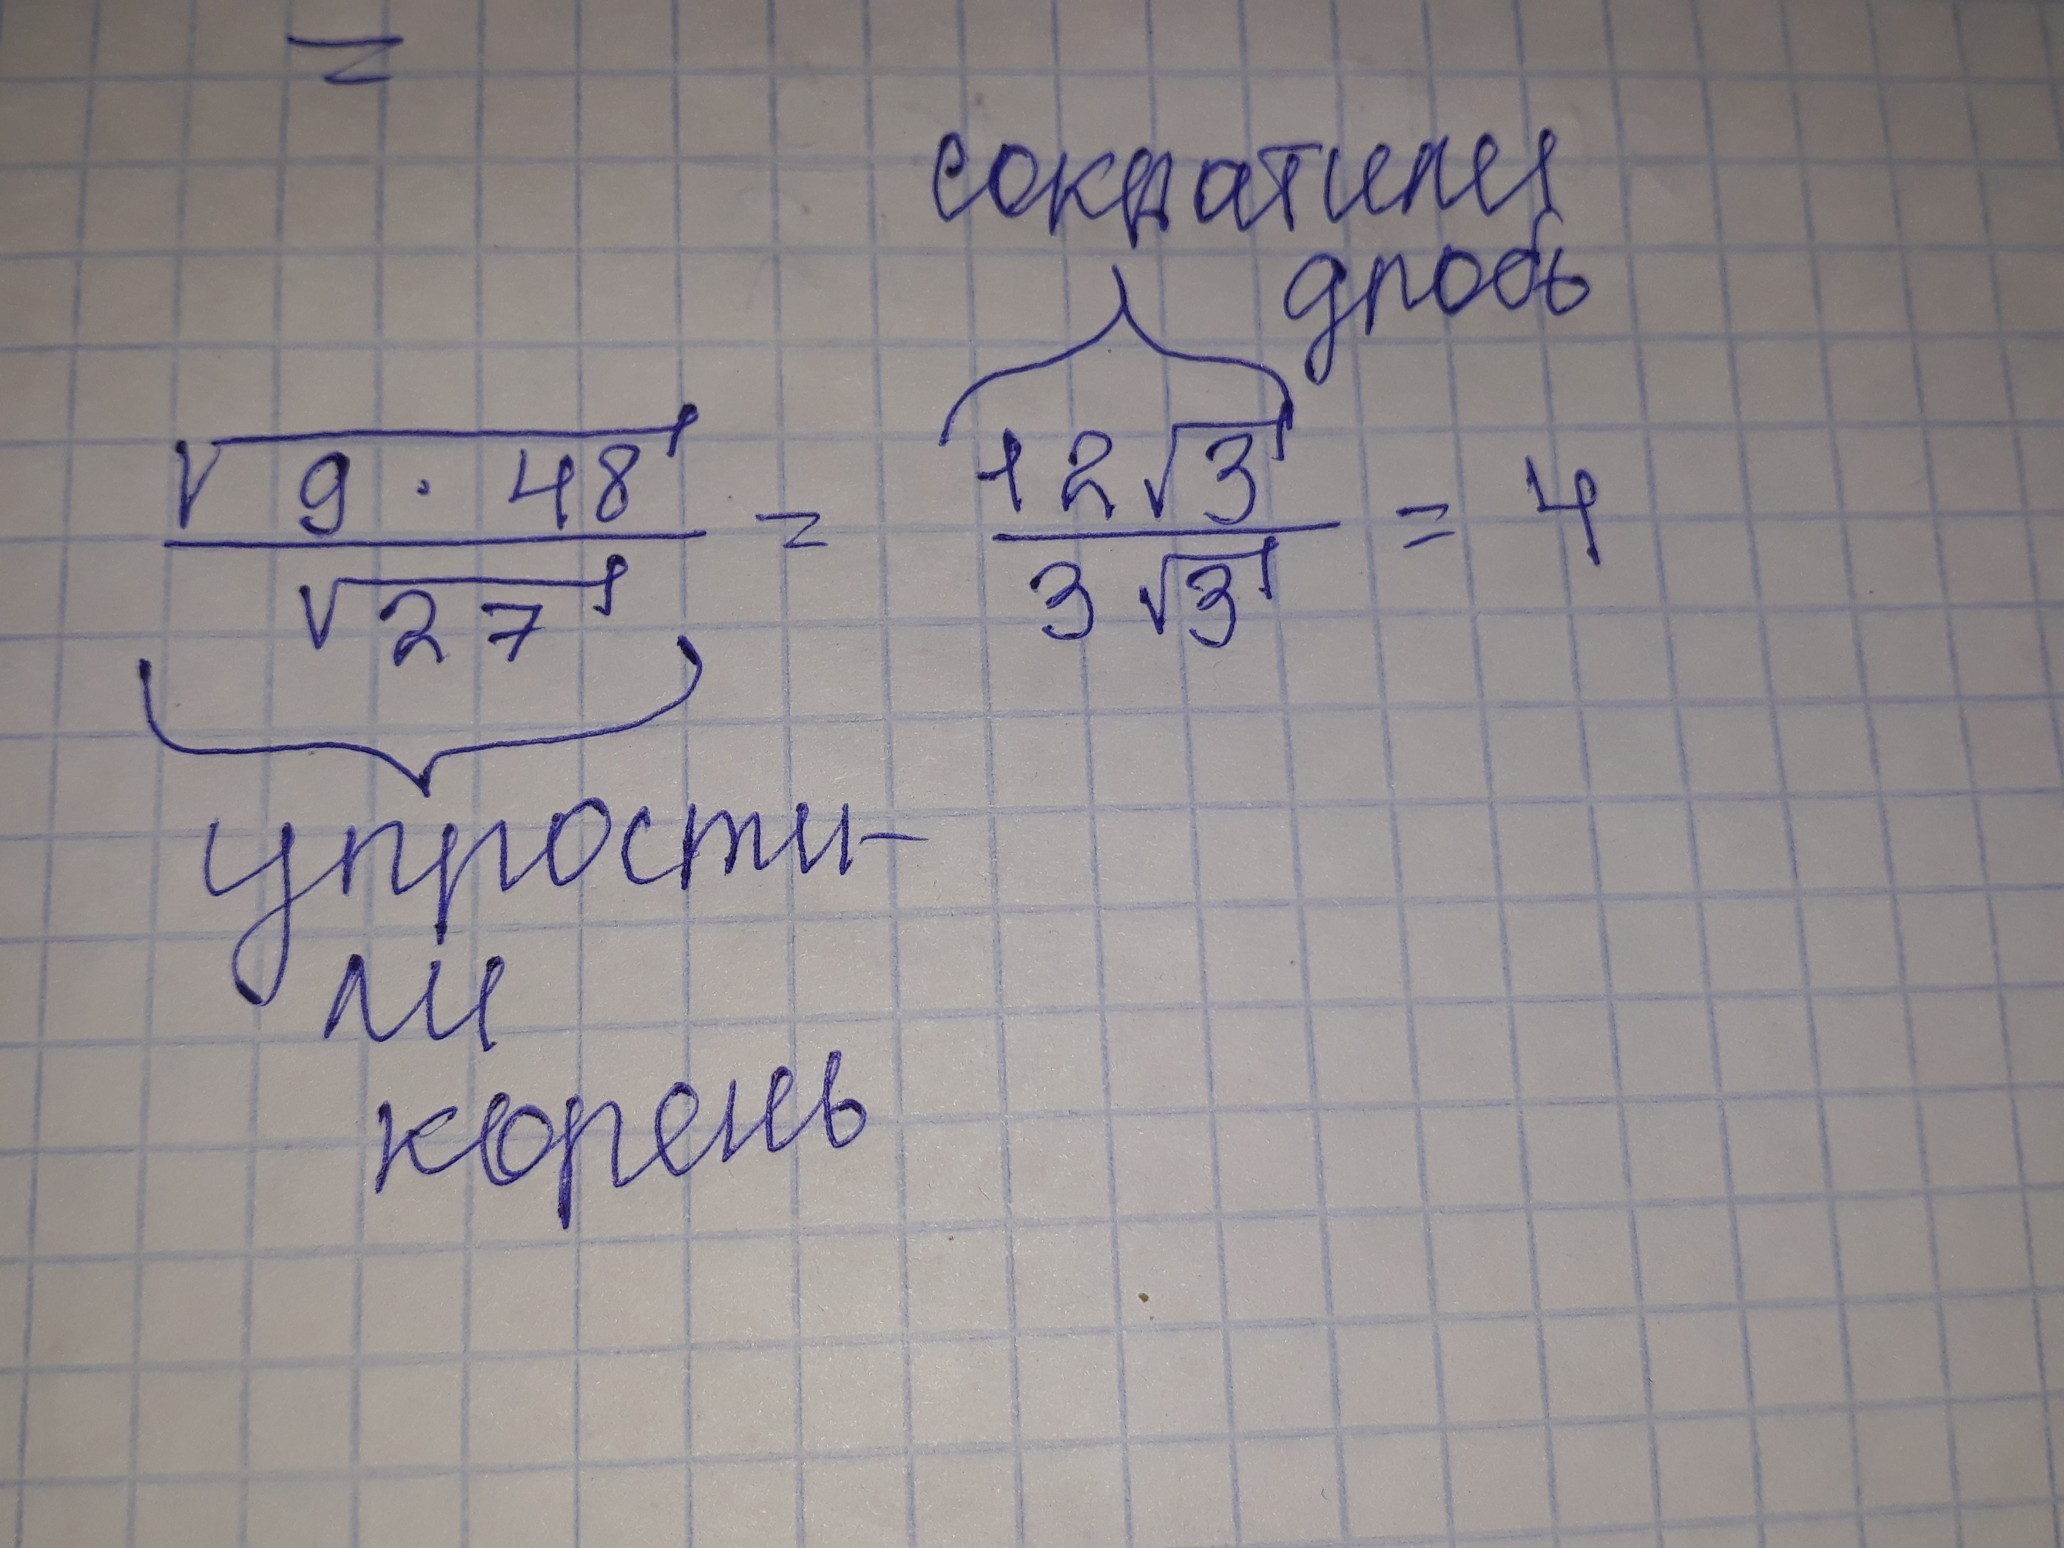 =
сократили
дробь
√9 · 48 / √27 = 12√3 / 3√3 = 4
упрости-
ли
корень